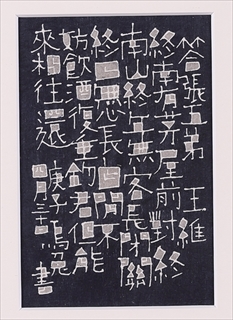 答張五弟 王維
終南有茅屋前對終
南山終年無客長閉關
終日無心長自閒不
妨飲酒復垂釣君但能
來相往還 庚子 書